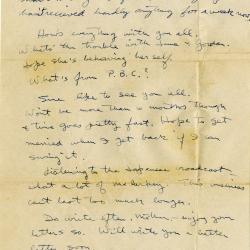 haven't received hardly anything for a week now
How's everything with you all.
What's the trouble with June &
Hope she's behaving herself.
What's from P.B.C.?
Sure like to see you all.
Won't be more than months though
& time goes pretty fast. Hope to get
married when I get back if I can
swing it.
Listening to the Japanese broadcast.
what a lot of This
cant last too much longer.
Do write often, Mother, enjoy your
letters so. Will write you a
soon